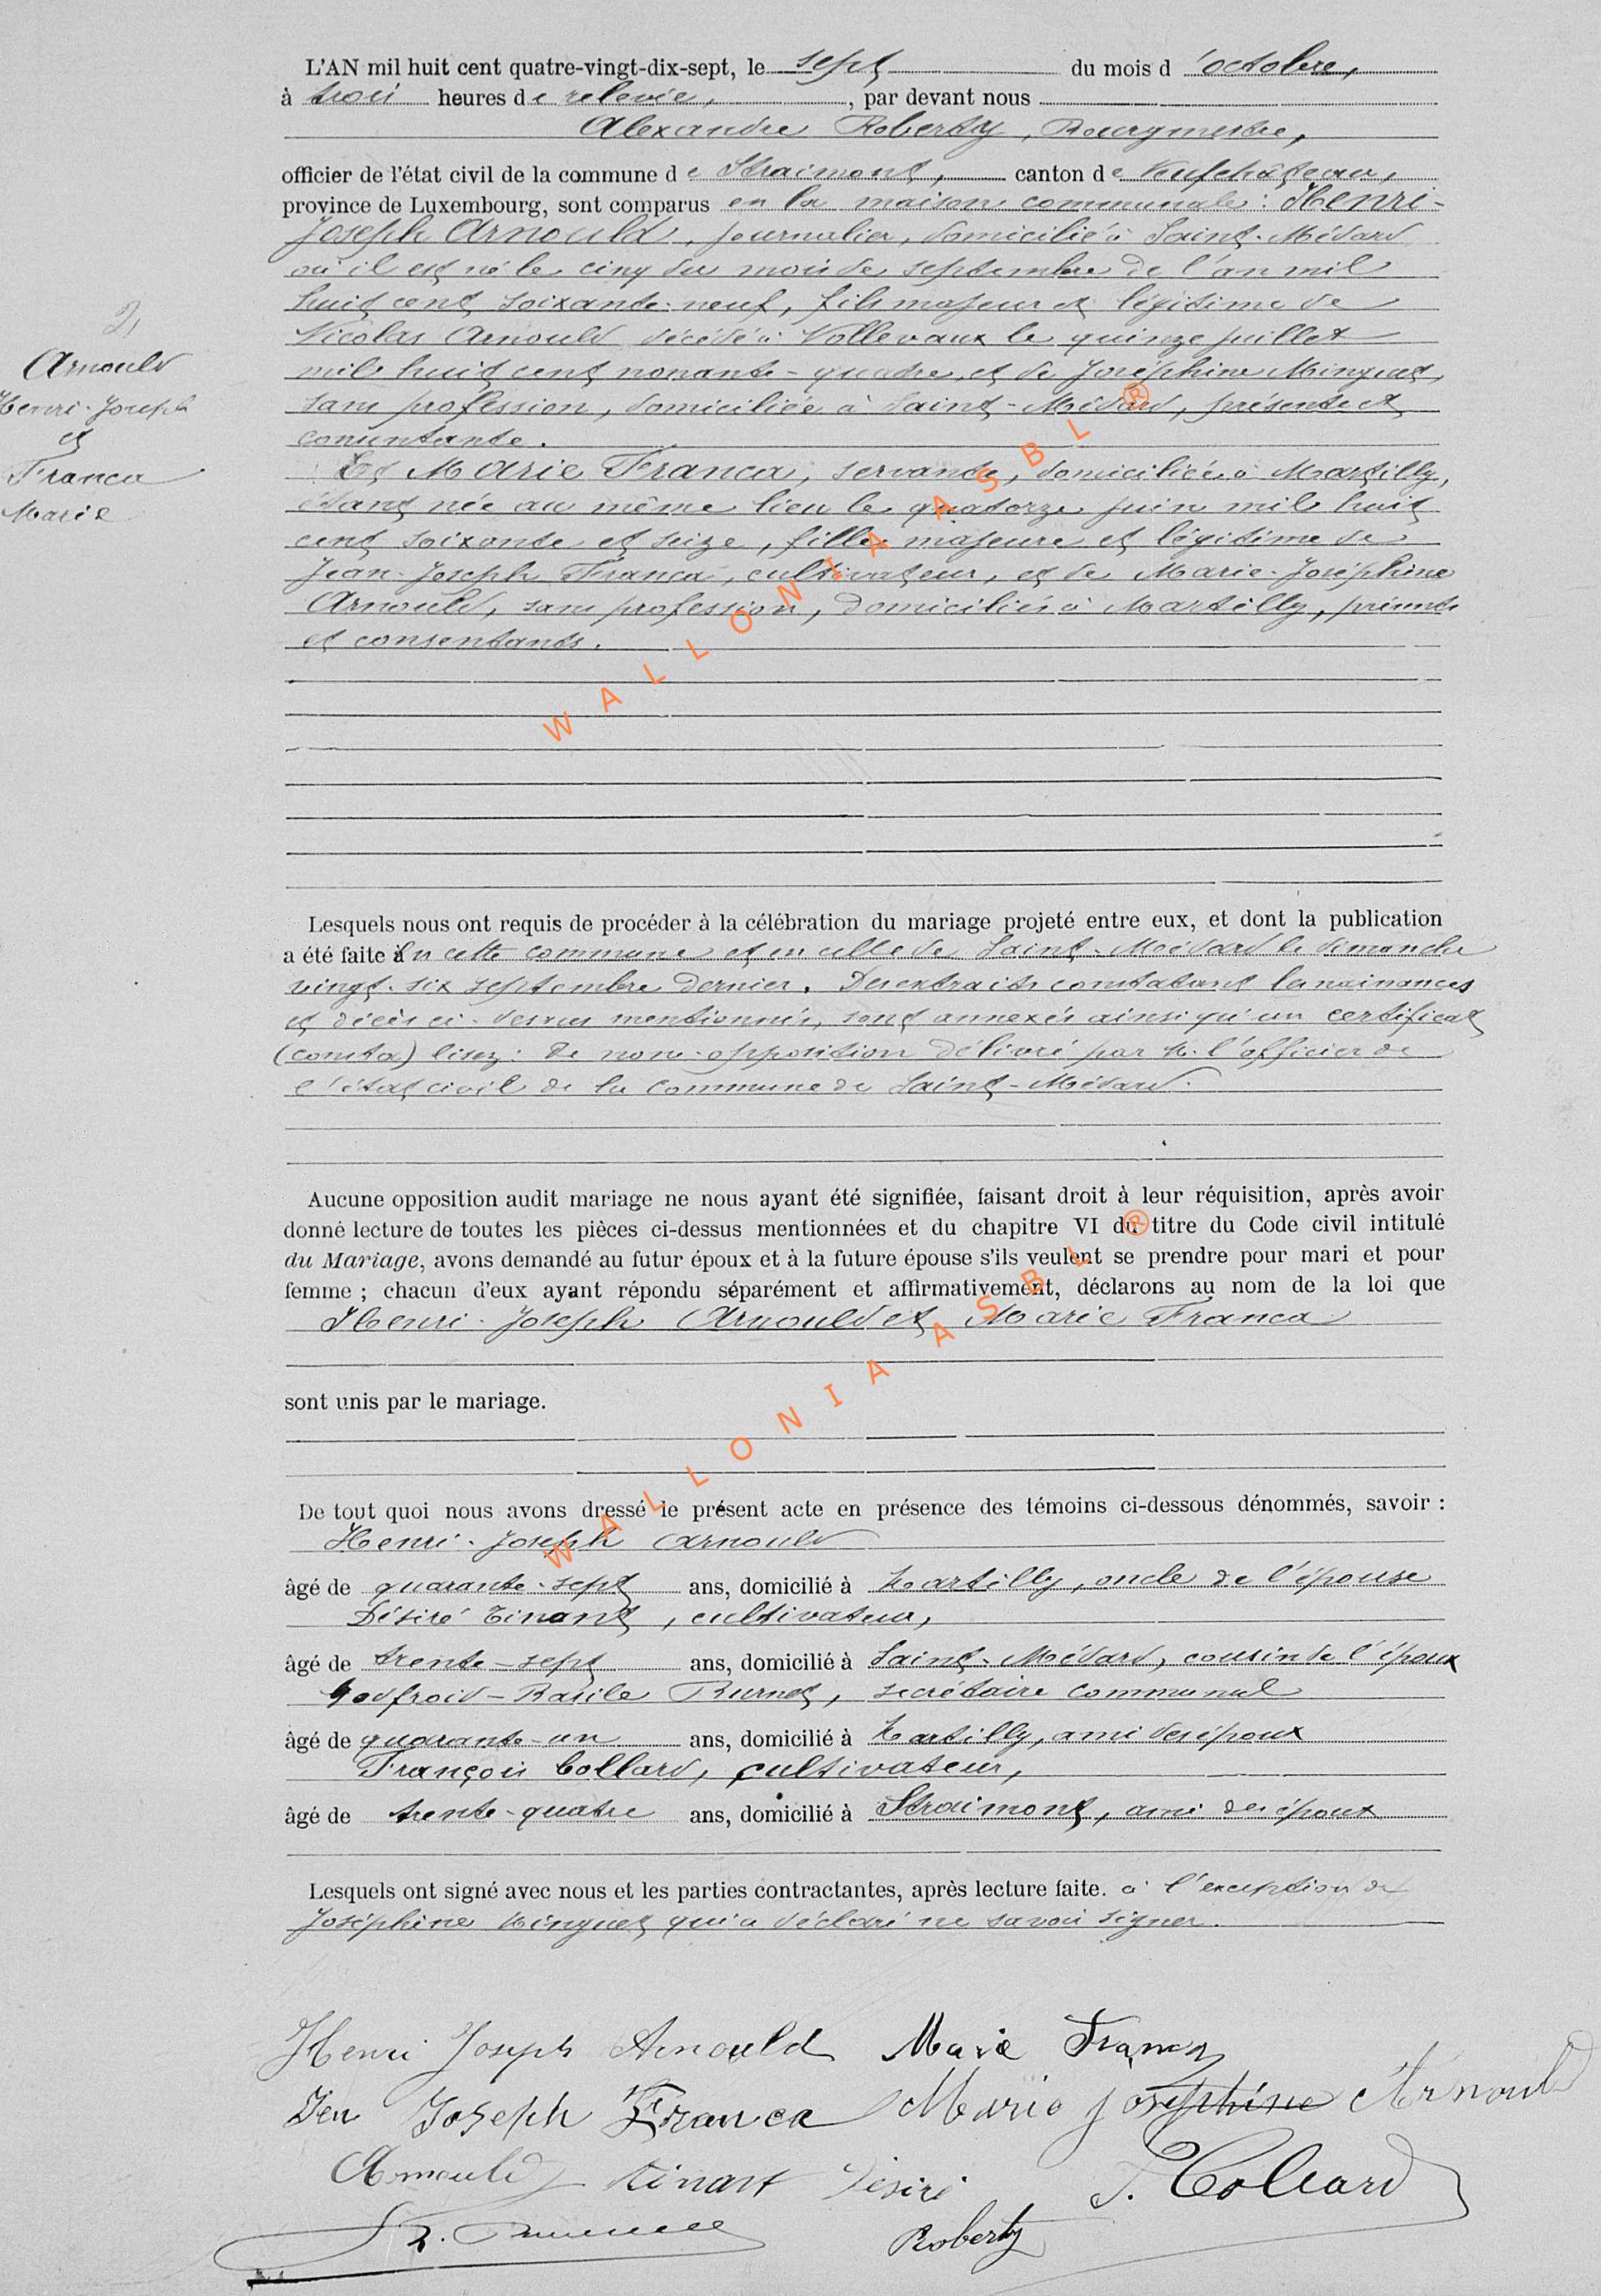 L'AN mil huit cent quatre-vingt-dix-sept, le sept du mois d'octobre,
à trois heures de relevée, , par devant nous
Alexandre Roberty, Bourgmestre,
officier de l'état civil de la commune de Straimont, canton de Neufchâteau,
province de Luxembourg, sont comparus en la maison communale : Henri-
Joseph Arnould, journalier, domicilié à Saint-Médard
où il est né le cinq du mois de septembre de l'an mil
huit cent soixante-neuf, fils majeur et légitime de
Nicolas Arnould décédé à Vollevaux le quinze juillet
mil huit cent nonante-quatre, et de Joséphine Minguet,
sans profession, domiciliée à Saint-Médard, présente et
consentante.
2,
Arnould
Henri-Joseph
et
Franca
Marie
Et Marie Franca, servante, domiciliée à Martilly,
étant née au même lieu le quatorze juin mil huit
cent soixante et seize, fille majeure et légitime de
Jean-Joseph Franca, cultivateur, et de Marie-Joséphine
Arnould, sans profession, domiciliés à Martilly, présents
et consentants.
WALLONIA ASBL ®
Lesquels nous ont requis de procéder à la célébration du mariage projeté entre eux, et dont la publication
a été faite à en cette commune et en celle de Saint-Médard le dimanche
vingt-six septembre dernier. Des extraits constatant les naissances
et décès ci-dessus mentionnés, sont annexés ainsi qu'un certificat
(consta) lisez : de non-opposition délivré par M. l'officier de
l'état civil de la commune de Saint-Médard.
Aucune opposition audit mariage ne nous ayant été signifiée, faisant droit à leur réquisition, après avoir
donné lecture de toutes les pièces ci-dessus mentionnées et du chapitre VI du titre du Code civil intitulé
du Mariage, avons demandé au futur époux et à la future épouse s'ils veulent se prendre pour mari et pour
femme ; chacun d'eux ayant répondu séparément et affirmativement, déclarons au nom de la loi que
Henri-Joseph Arnould et Marie Franca
sont unis par le mariage.
WALLONIA ASBL ®
De tout quoi nous avons dressé le présent acte en présence des témoins ci-dessous dénommés, savoir :
Henri-Joseph Arnould
âgé de quarante-sept ans, domicilié à Martilly, oncle de l'épouse
Désiré Tinant, cultivateur,
âgé de trente-sept ans, domicilié à Saint-Médard, cousin de l'époux
Godfroid-Basile Burnet, secrétaire communal
âgé de quarante-un ans, domicilié à Martilly, ami des époux
François Collard, cultivateur,
âgé de trente-quatre ans, domicilié à Straimont, ami des époux
Lesquels ont signé avec nous et les parties contractantes, après lecture faite. à l'exception de
Joséphine Minguet qui a déclaré ne savoir signer.
Henri Joseph Arnould Marie Franca
Jen Joseph Franca Marie Joséphine Arnould
Arnould Tinant Désiré F. Collard
Roberty